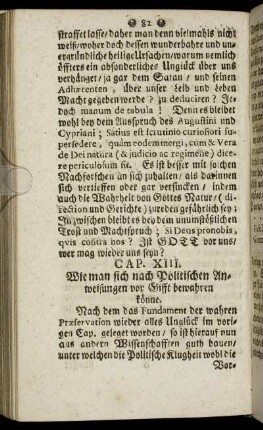 82
straffet lasse/ daher man denn vielmahls nicht
weiß/ woher doch dessen wunderbahre und un-
ergründliche heilige Ursachen/ warum nemlich
öffters ein absonderliches Unglück über uns
verhänget/ ja gar dem Satan/ und seinen
Adhærenten, über unser Leib und Leben
Macht gegeben werde? zu deduciren? Je-
doch manum de tabula! Denn es bleibt
wohl bey dem Ausspruch des Augustini und
Cypriani; Satius est scrutinio curiosiori su-
persedere, quàm eodem mergi, cum & Vera
de Dei natura (& judicio ac regimine) dice-
re periculosum sit. Es ist besser mit solchen
Nachforschen an sich zuhalten/ als darinnen
sich vertieffen oder gar versincken/ indem
auch die Wahrheit von Gottes Natur/ (di-
rection und Gerichte) zureden gefährlich sey:
Inzwischen bleibt es bey dem unumstößlichen
Trost und Machtspruch; Si Deus pro nobis,
qvis contra nos? Ist GOTT vor uns/
wer mag wieder uns seyn?
CAP. XIII.
Wie man sich nach Politischen An-
weisungen vor Gifft bewahren
könne.
Nach dem das Fundament der wahren
Præservation wieder alles Unglück im vori-
gen Cap. geleget worden/ so ist hierauf nun
aus andern Wissenschafften guth bauen/
unter welchen die Politische Klugheit wohl die
Vor-